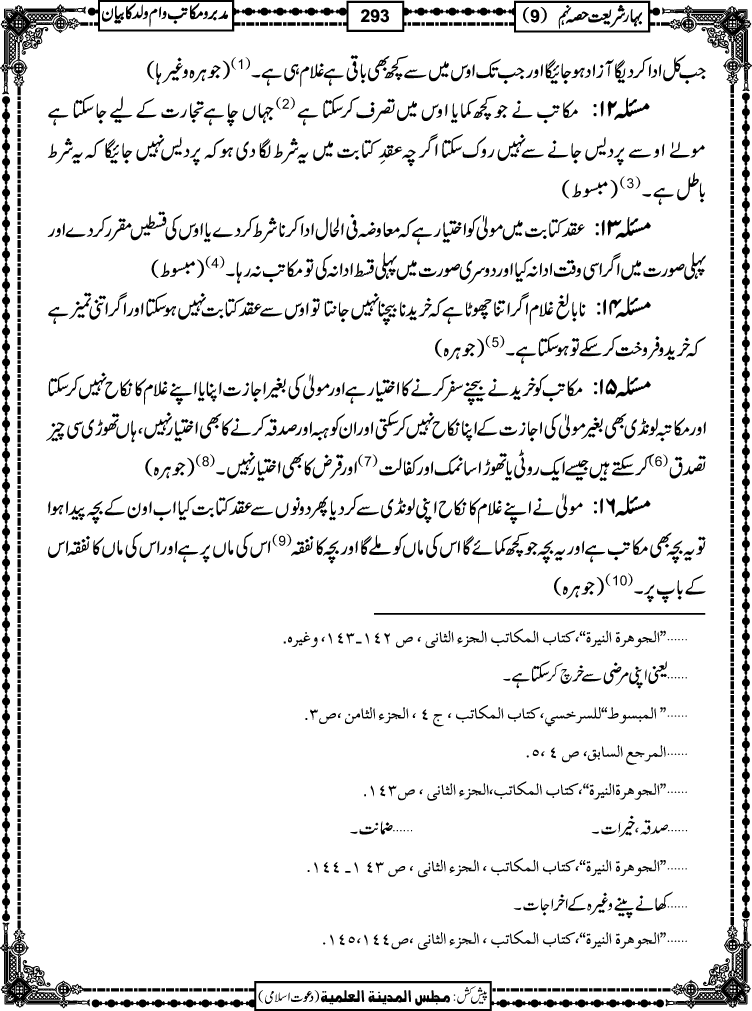 بہارشریعت حصہ نہم (9)
293
مدبر و مکاتب و ام ولد کا بیان
جب کل ادا کر دیگا آزاد ہو جائیگا اور جب تک اوس میں سے کچھ بھی باقی ہے غلام ہی ہے۔(1) (جوہرہ وغیرہا)
مسئلہ ۱۲: مکاتب نے جو کچھ کمایا اوس میں تصرف کرسکتا ہے(2) جہاں چاہے تجارت کے لیے جاسکتا ہے
مولےٰ اوسے پردیس جانے سے نہیں روک سکتا اگرچہ عقدِ کتابت میں یہ شرط لگا دی ہو کہ پردیس نہیں جائیگا کہ یہ شرط
باطل ہے۔(3) (مبسوط)
مسئلہ ۱۳: عقد کتابت میں مولیٰ کو اختیار ہے کہ معاوضہ فی الحال ادا کرنا شرط کردے یا اوس کی قسطیں مقرر کردے اور
پہلی صورت میں اگر اسی وقت ادا نہ کیا اور دوسری صورت میں پہلی قسط ادا نہ کی تو مکاتب نہ رہا۔(4) (مبسوط)
مسئلہ ۱۴: نابالغ غلام اگر اتنا چھوٹا ہے کہ خریدنا بیچنا نہیں جانتا تو اوس سے عقد کتابت نہیں ہوسکتا اور اگر اتنی تمیز ہے
کہ خرید و فروخت کرسکے تو ہوسکتا ہے۔(5) (جوہرہ)
مسئلہ ۱۵: مکاتب کو خریدنے بیچنے سفر کرنے کا اختیار ہے اور مولیٰ کی بغیر اجازت اپنا یا اپنے غلام کا نکاح نہیں کرسکتا
اور مکاتبہ لونڈی بھی بغیر مولیٰ کی اجازت کے اپنا نکاح نہیں کرسکتی اور ان کو ہبہ اور صدقہ کرنے کا بھی اختیار نہیں، ہاں تھوڑی سی چیز
تصدق(6) کرسکتے ہیں جیسے ایک روٹی یا تھوڑا سا نمک اور کفالت(7) اور قرض کا بھی اختیار نہیں۔(8) (جوہرہ)
مسئلہ ۱۶: مولیٰ نے اپنے غلام کا نکاح اپنی لونڈی سے کردیا پھر دونوں سے عقد کتابت کیا اب اون کے بچہ پیدا ہوا
تو یہ بچہ بھی مکاتب ہے اور یہ بچہ جو کچھ کمائے گا اس کی ماں کو ملے گا اور بچہ کا نفقہ(9) اس کی ماں پر ہے اور اس کی ماں کا نفقہ اس
کے باپ پر۔(10) (جوہرہ)
......"الجوهرة النيرة"، كتاب المكاتب الجزء الثانی ، ص ١٤٢ـ١٤٣، وغيره.
......یعنی اپنی مرضی سے خرچ کرسکتا ہے۔
......" المبسوط"للسرخسي، كتاب المكاتب ، ج ٤ ، الجزء الثامن ، ص٣.
......المرجع السابق، ص ٤ ،٥.
......"الجوهرة النيرة"، كتاب المكاتب، الجزء الثانی ، ص١٤٣.
......صدقہ، خیرات۔ ......ضمانت۔
......"الجوهرة النيرة"، كتاب المكاتب ، الجزء الثانی ، ص ١٤٣ـ ١٤٤.
......کھانے پینے وغیرہ کے اخراجات۔
......"الجوهرة النيرة"، كتاب المكاتب ، الجزء الثانی ، ص١٤٤، ١٤٥.
پیش کش: مجلس المدينة العلمية (دعوت اسلامی)